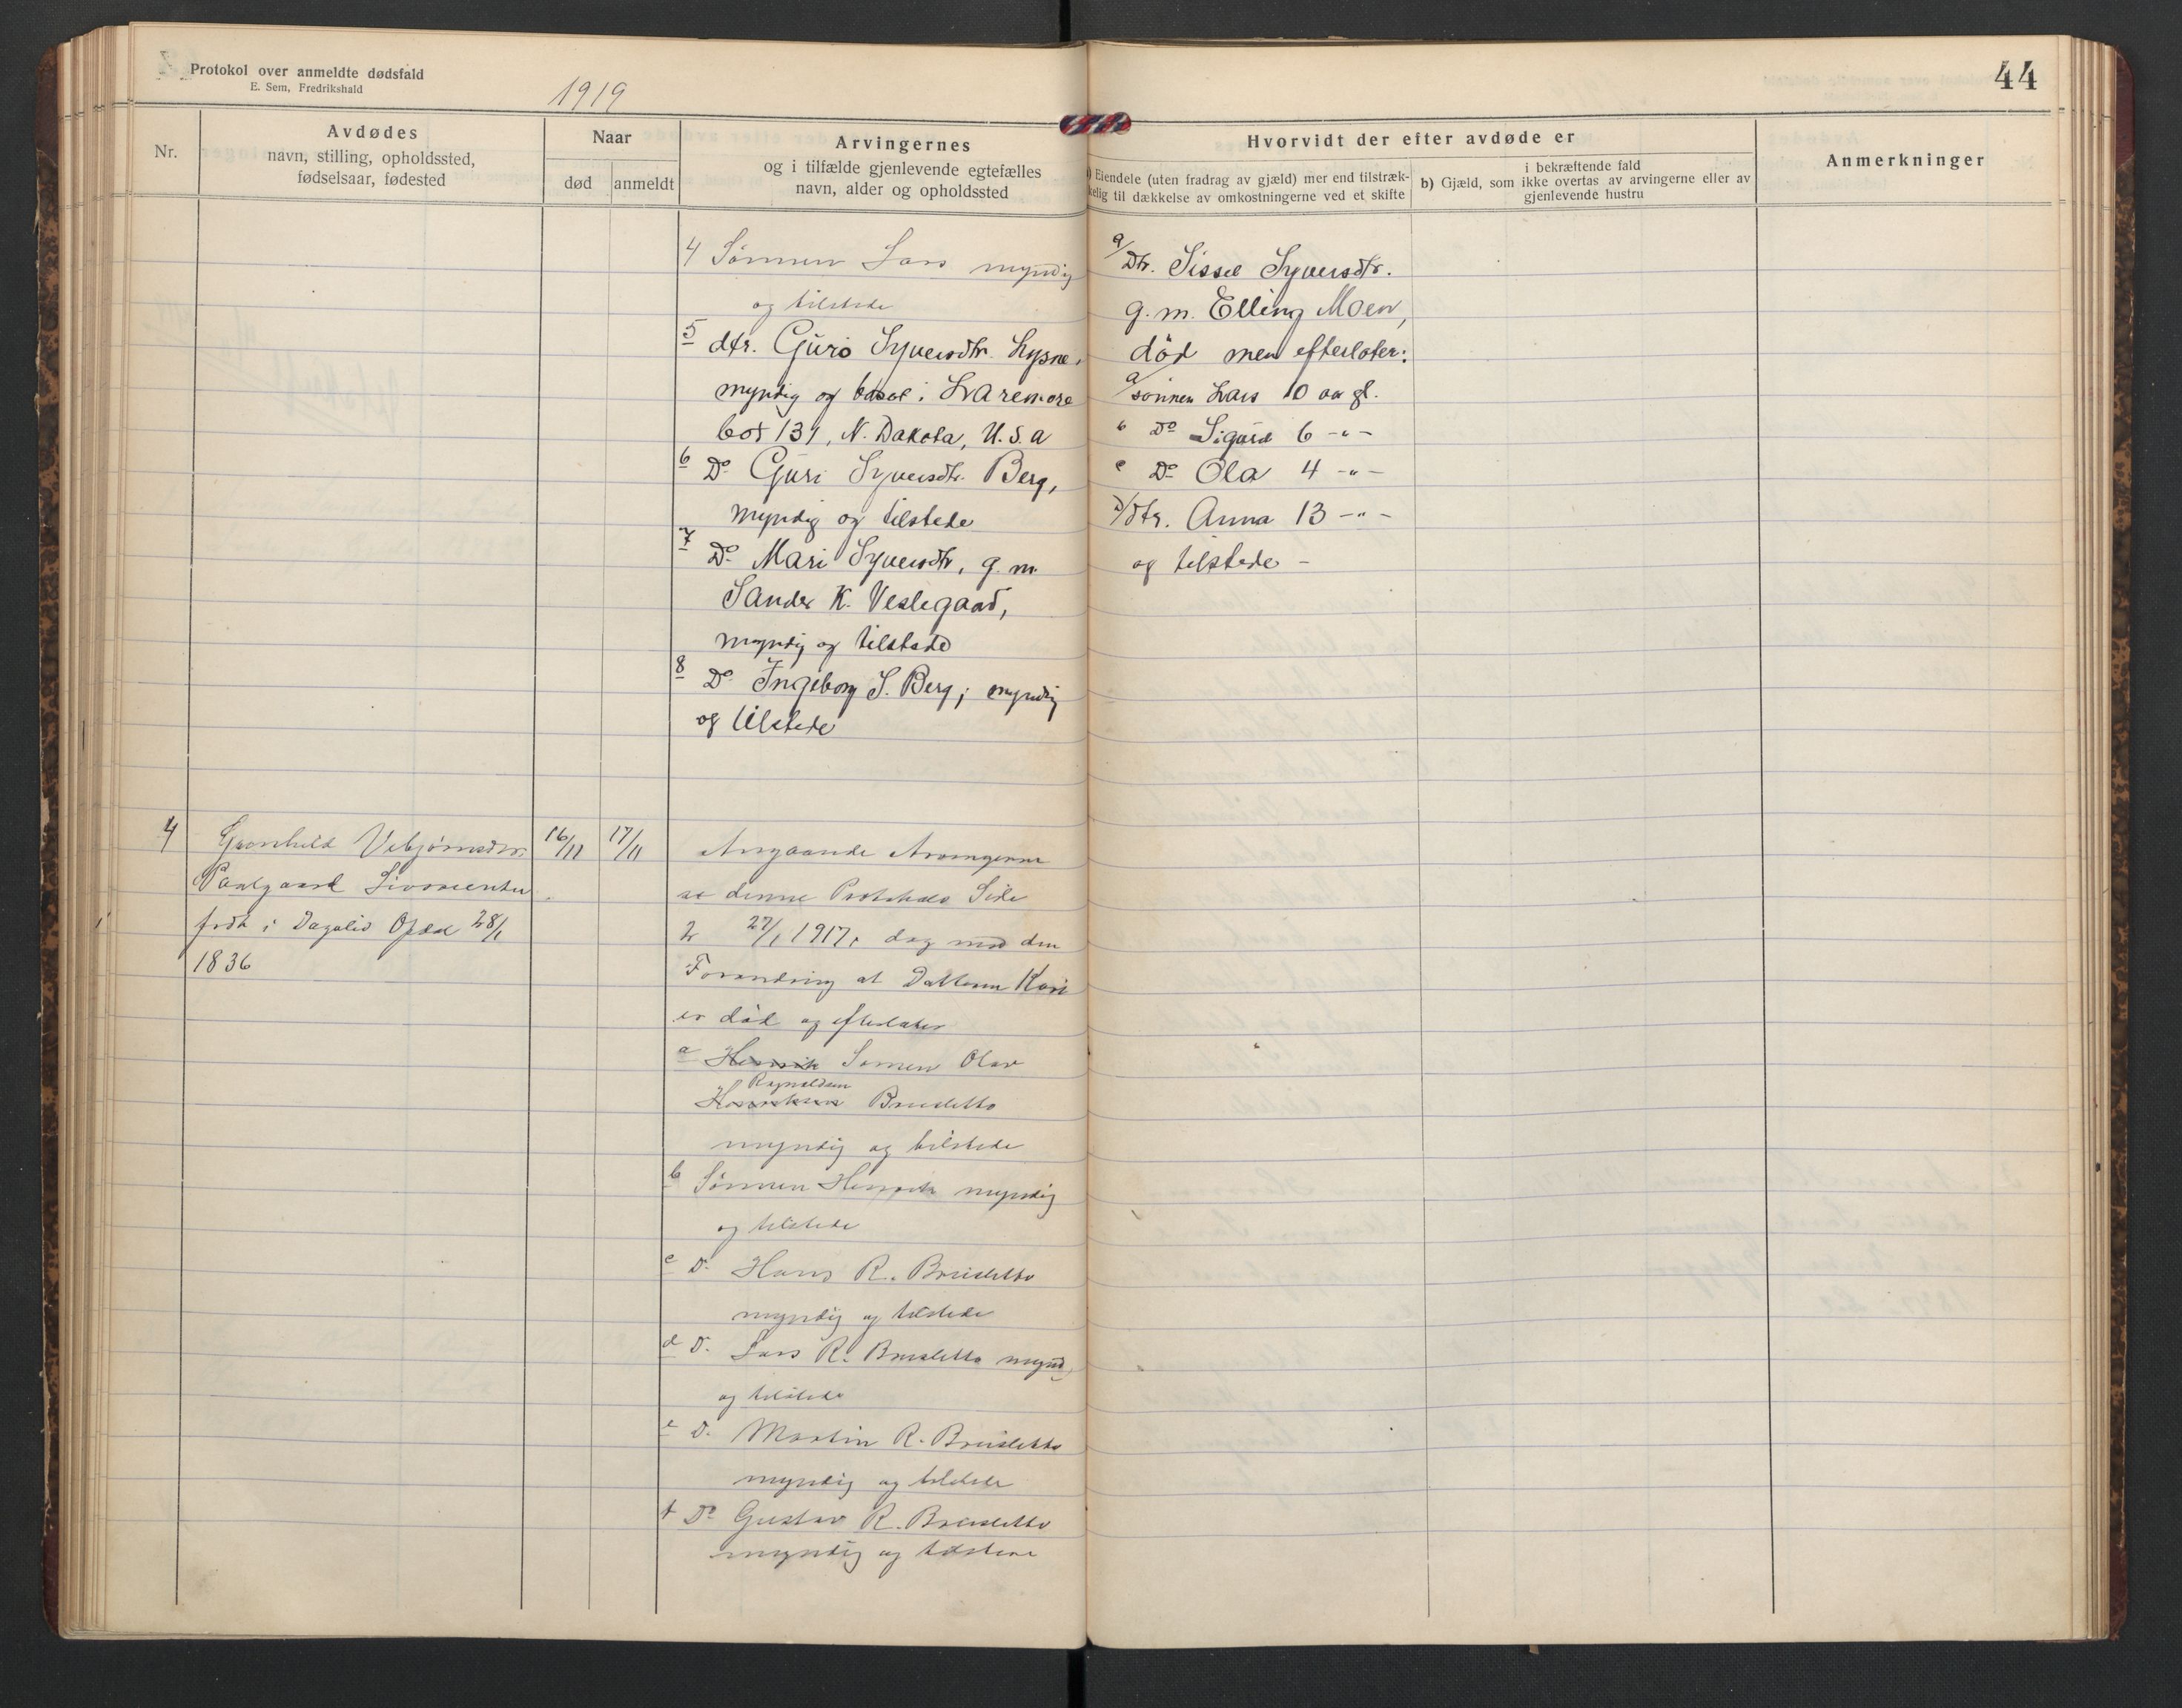 Protokol over anmeldte dødsfald
E. Sem, Fredrikshald
1919
Nr.
Avdødes
navn, stilling, opholdssted,
fødselsaar, fødested
Naar
død
anmeldt
Arvingernes
og i tilfælde gjenlevende egtefælles
navn, alder og opholdssted
4 Sønnen Lars myndig
og tilstede
5 dtr. Guro Syversdtr. Lysne,
myndig og bosat i Laremore
box 131, N. Dakota, U.S.a
6 Do Guri Syversdtr. Berg,
myndig og tilstede
7 Do Mari Syversdtr, g.m.
Sander K. Veslegaard,
myndig og tilstede
8 Do Ingeborg S. Berg, myndig
og tilstede
4
Gunhild Vebjørnsdtr.
Paalgaard
født i Dagalid Opdal 28/1
1836
16/11
17/11
Angaaende Arvingerne
se denne Protokols Side
2 27/1 1917, dog med den
Forandring at Datteren Kari
er død og efterlater
a Henrik Sønnen Olav
Ragnvaldsen
Henriksen Breidetto
myndig og tilstede
b Sønnen Henrik myndig
og tilstede
c D. Hans R. Breidetto
myndig og tilstede
d D. Lars R. Breidetto mynd.
og tilstede
e D. Martin R. Breidetto
myndig og tilstede
f Do Gustav R. Breidetto
myndig og tilstede
44
Hvorvidt der efter avdøde er
a) Eiendele (uten fradrag av gjæld) mer end tilstræk-
kelig til dækkelse av omkostningerne ved et skifte
i bekræftende fald
b) Gjæld, som ikke overtas av arvingerne eller av
gjenlevende hustru
Anmerkninger
9/ Dtr. Sissel Syversdtr.
g.m. Elling Moen,
død men efterlater:
a/ sønnen Lars 10 aar gl.
b Do Sigurd 6 -"-
c Do Ola 4 -"-
d/ dtr. Anna 13 -"-
og tilstede -